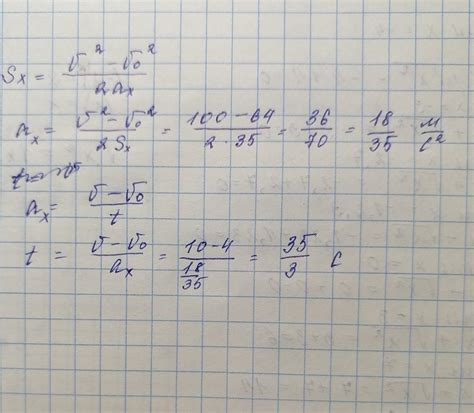 Sx = (υ² − υ₀²) / (2ax)
ax = (υ² − υ₀²) / (2Sx) = (100 − 64) / (2 · 35) = 36/70 = 18/35 м/с²
ax = (υ − υ₀) / t
t = (υ − υ₀) / ax = (10 − 4) / (18/35) = 35/3 с